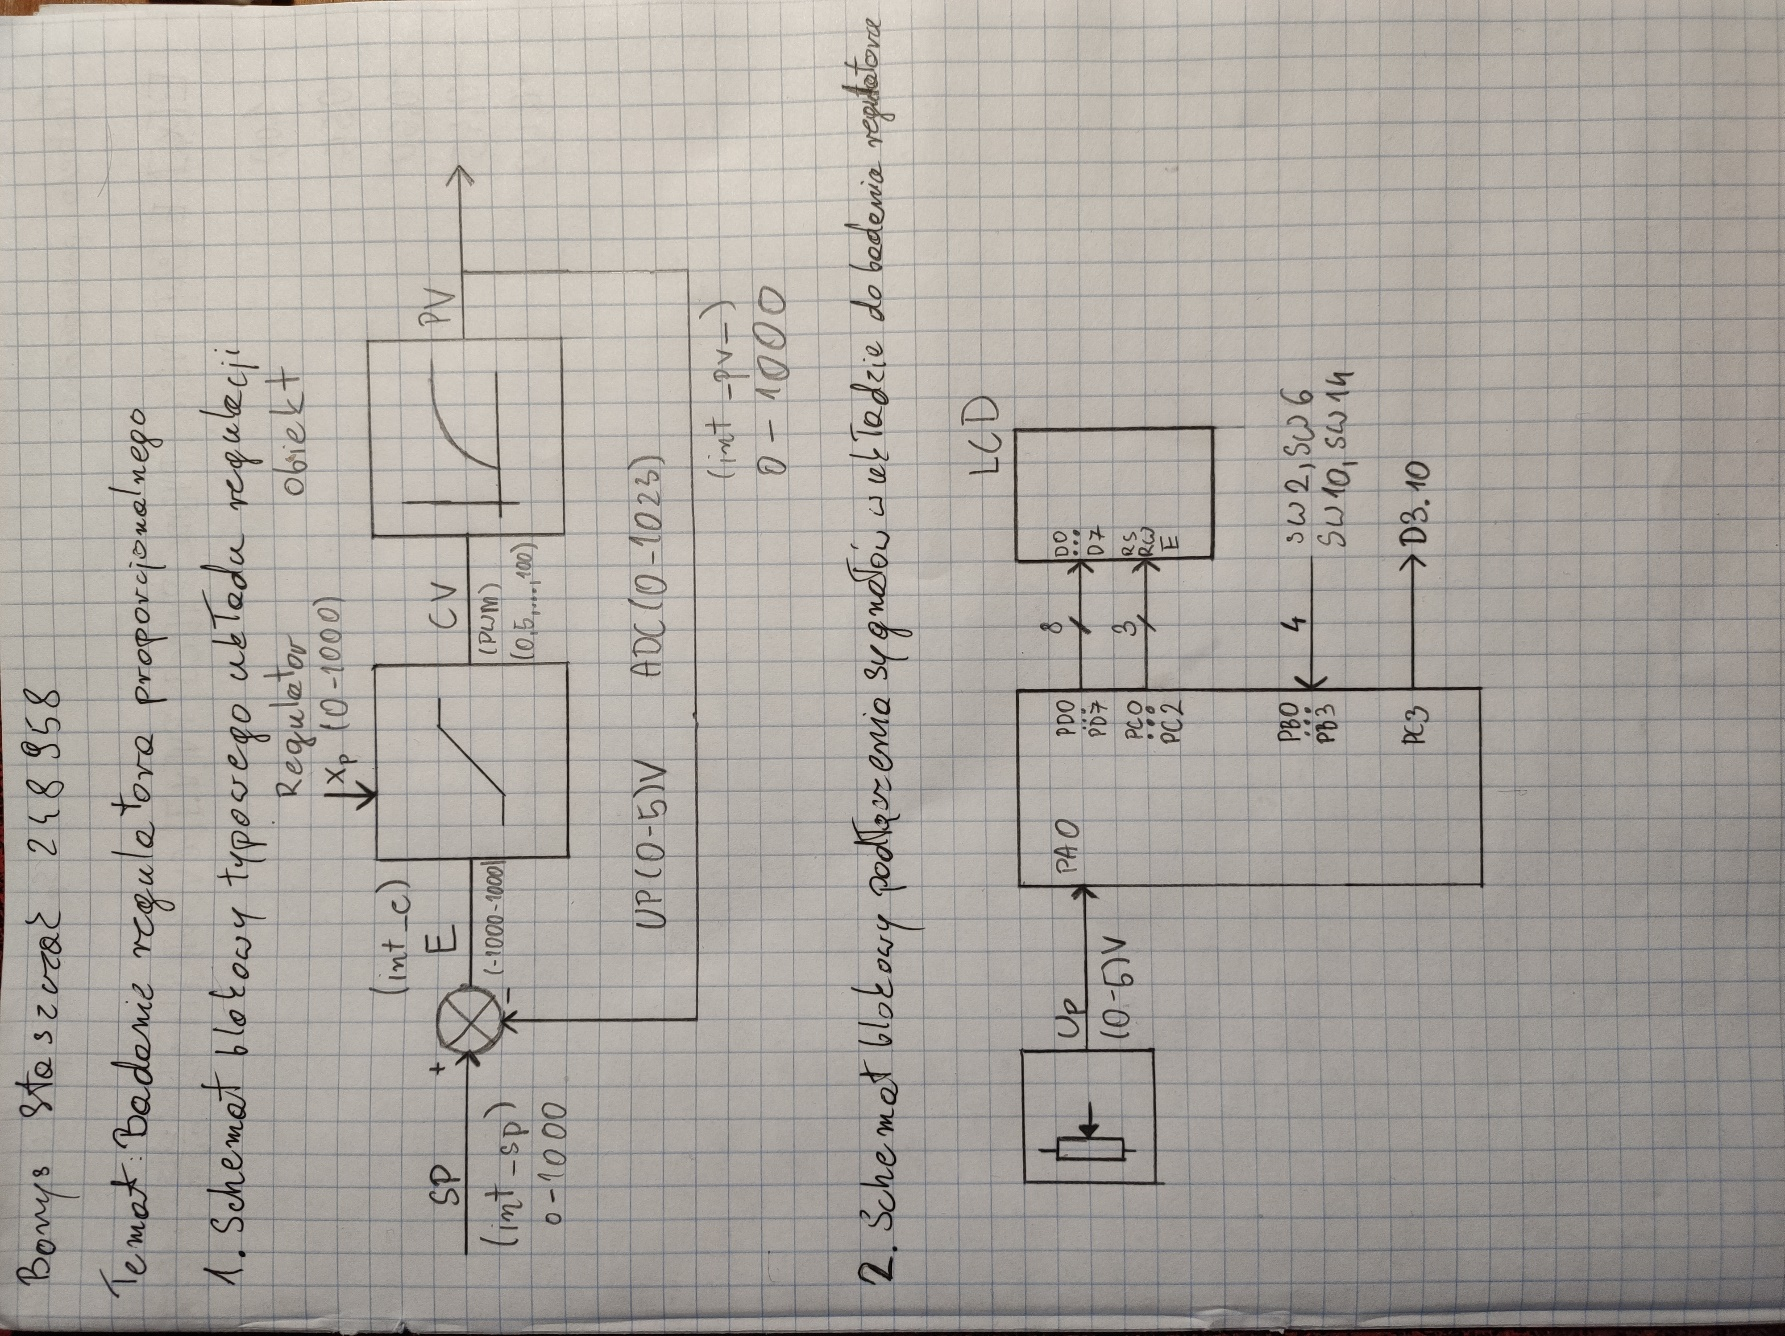 Borys Staszczak 248958
Temat: Badanie regulatora proporcjonalnego
1. Schemat blokowy typowego układu regulacji
Regulator
obiekt
Xp (0-1000)
(int_e)
SP
+
E
CV
PV
(int_sp)
0-1000
-
(-1000-1000)
(PWM)
(0,5,....,100)
UP(0-5)V
ADC(0-1023)
(int_pv_)
0-1000
2. Schemat blokowy podłączenia sygnałów w układzie do badania regulatora
LCD
Up
(0-5)V
PA0
PD0
PD7
PC0
PC2
PB0
PB3
PC3
8
3
4
D0
D7
RS
RW
E
SW2, SW6
SW10, SW14
D3.10